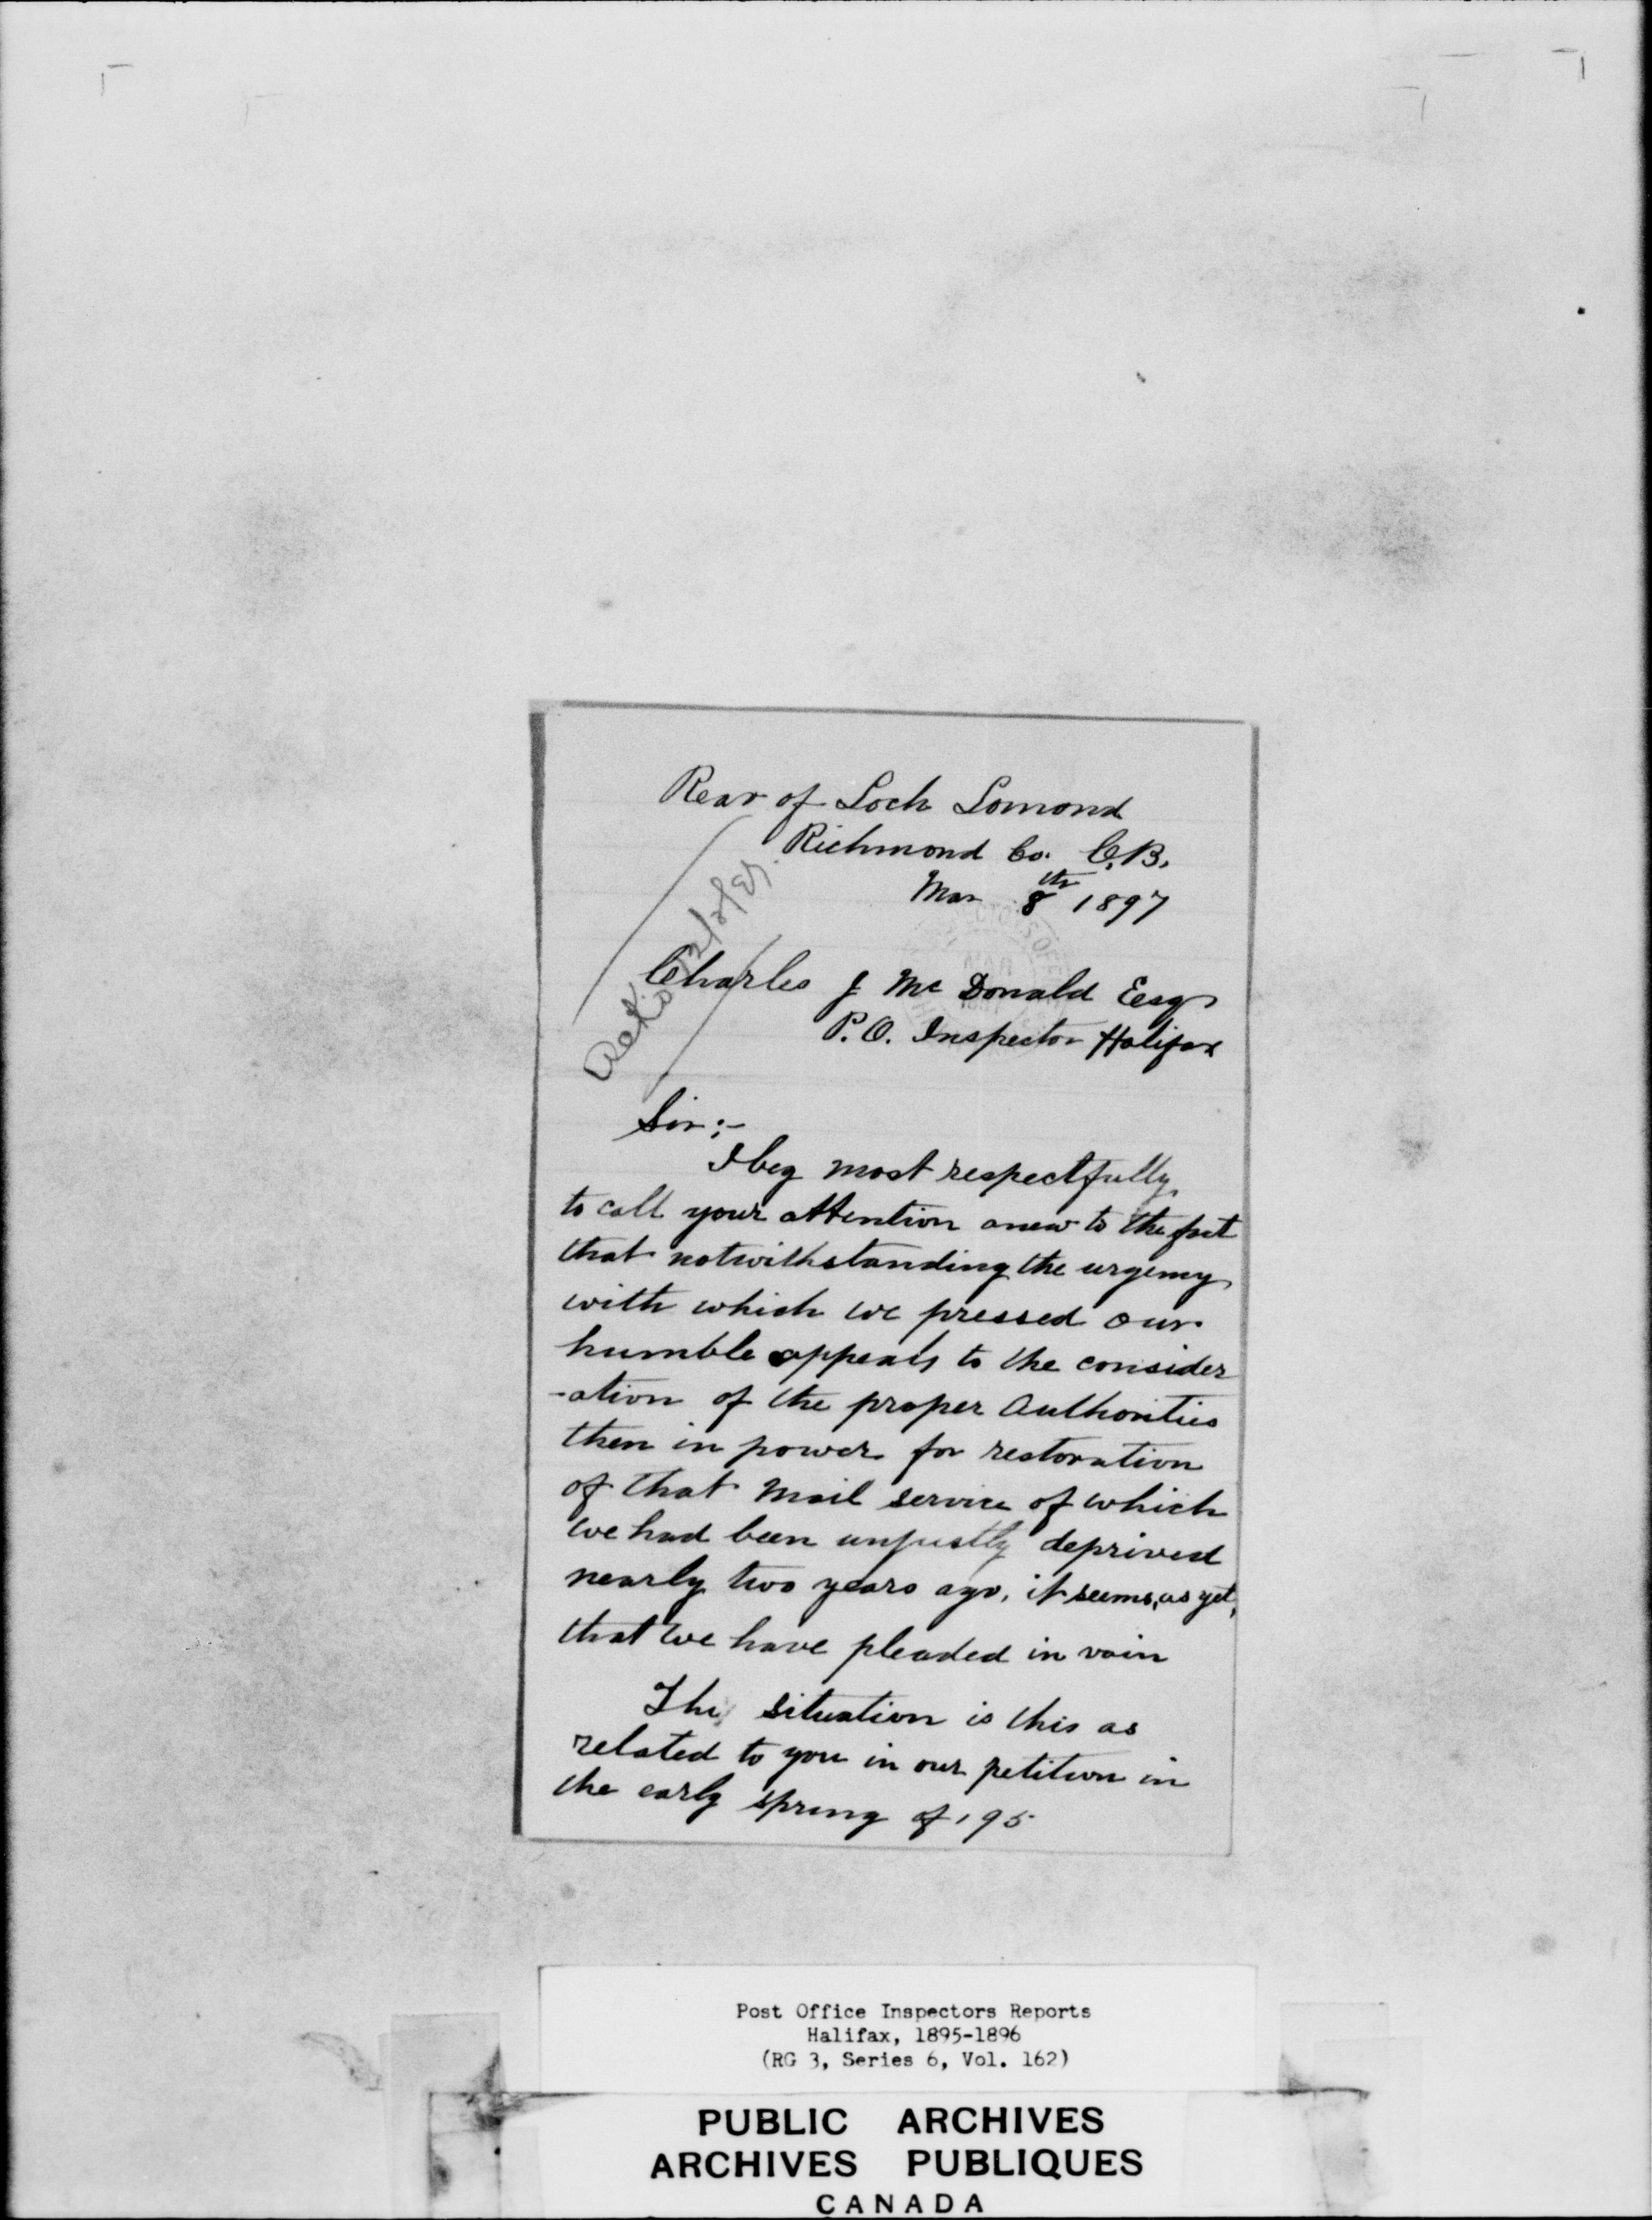 Rear of Loch Lomond
Richmond Co. C.B.
Mar 8th 1897
Charles J McDonald Esq
P.O. Inspector Halifax
Sir;-
I beg most respectfully
to call your attention anew to the fact
that notwithstanding the urgency
with which we pressed our
humble appeals to the consider
-ation of the proper Authorities
then in power for restoration
of that Mail service of which
we had been unjustly deprived
nearly two years ago, it seems, as yet,
that we have pleaded in vain
The situation is this as
related to you in our petition in
the early spring of '95
Post Office Inspectors Reports
Halifax, 1895-1896
(RG 3, Series 6, Vol. 162)
PUBLIC ARCHIVES
ARCHIVES PUBLIQUES
CANADA